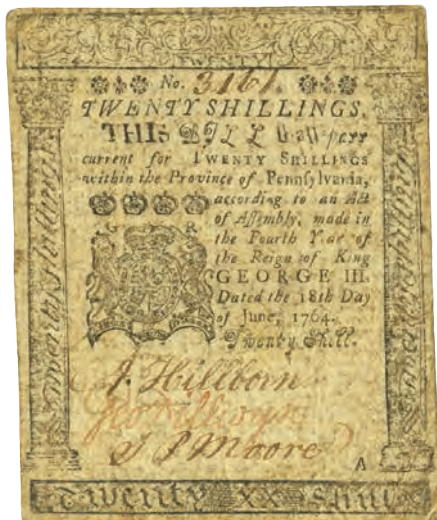 TWENTY
No. 3161.
TWENTY SHILLINGS.
THIS BILL shall pass
current for TWENTY SHILLINGS
within the Province of Pennsylvania,
according to an Act
of Assembly, made in
the Fourth Year of
the Reign of King
GEORGE III.
Dated the 18th Day
of June, 1764.
Twenty Shill.
G R
Twenty Shillings
Twenty Shillings
J. Hillborn
Geo Dillwyn
Moore
A
Twenty XX Shill